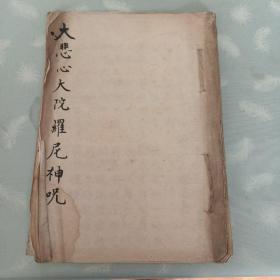 大悲心大院羅尼神呪